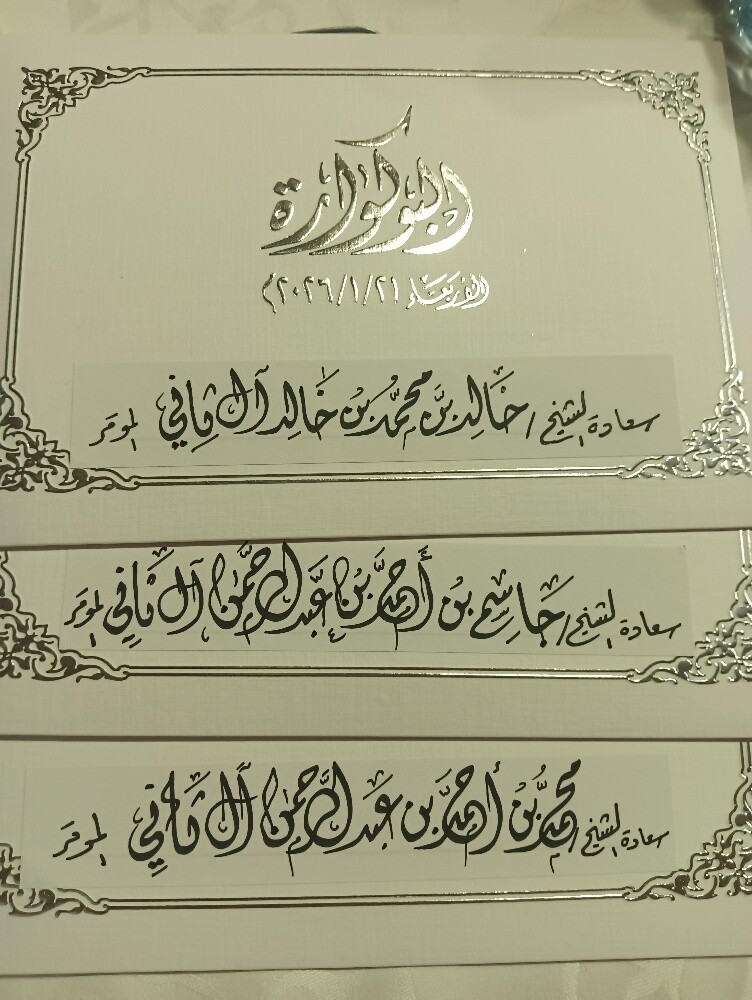 البوكوارة
الأربعاء ٢٠٢٦/١/٢١م
سعادة الشيخ / خالد بن محمد بن خالد آل ثاني الموقر
سعادة الشيخ / جاسم بن أحمد بن عبدالرحمن آل ثاني الموقر
سعادة الشيخ / محمد بن أحمد بن عبدالرحمن آل ثاني الموقر